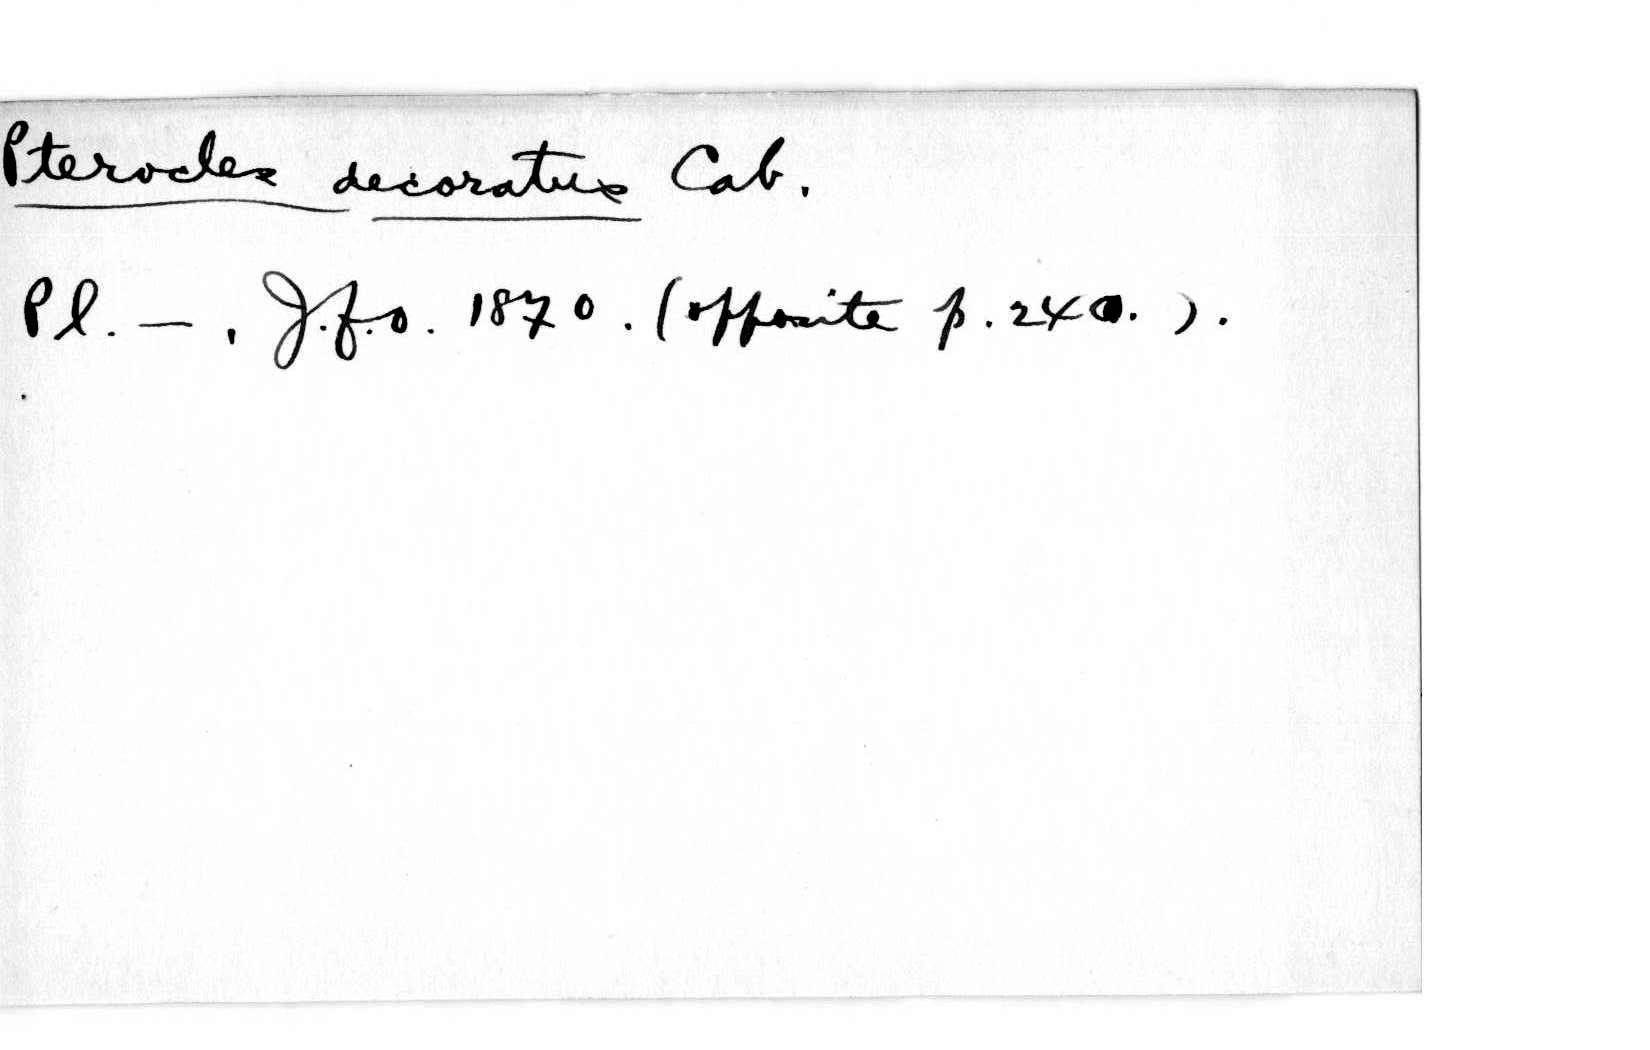 Pterocles decoratus Cab.
Pl. — , J.f.o. 1870. (opposite p. 240. ).